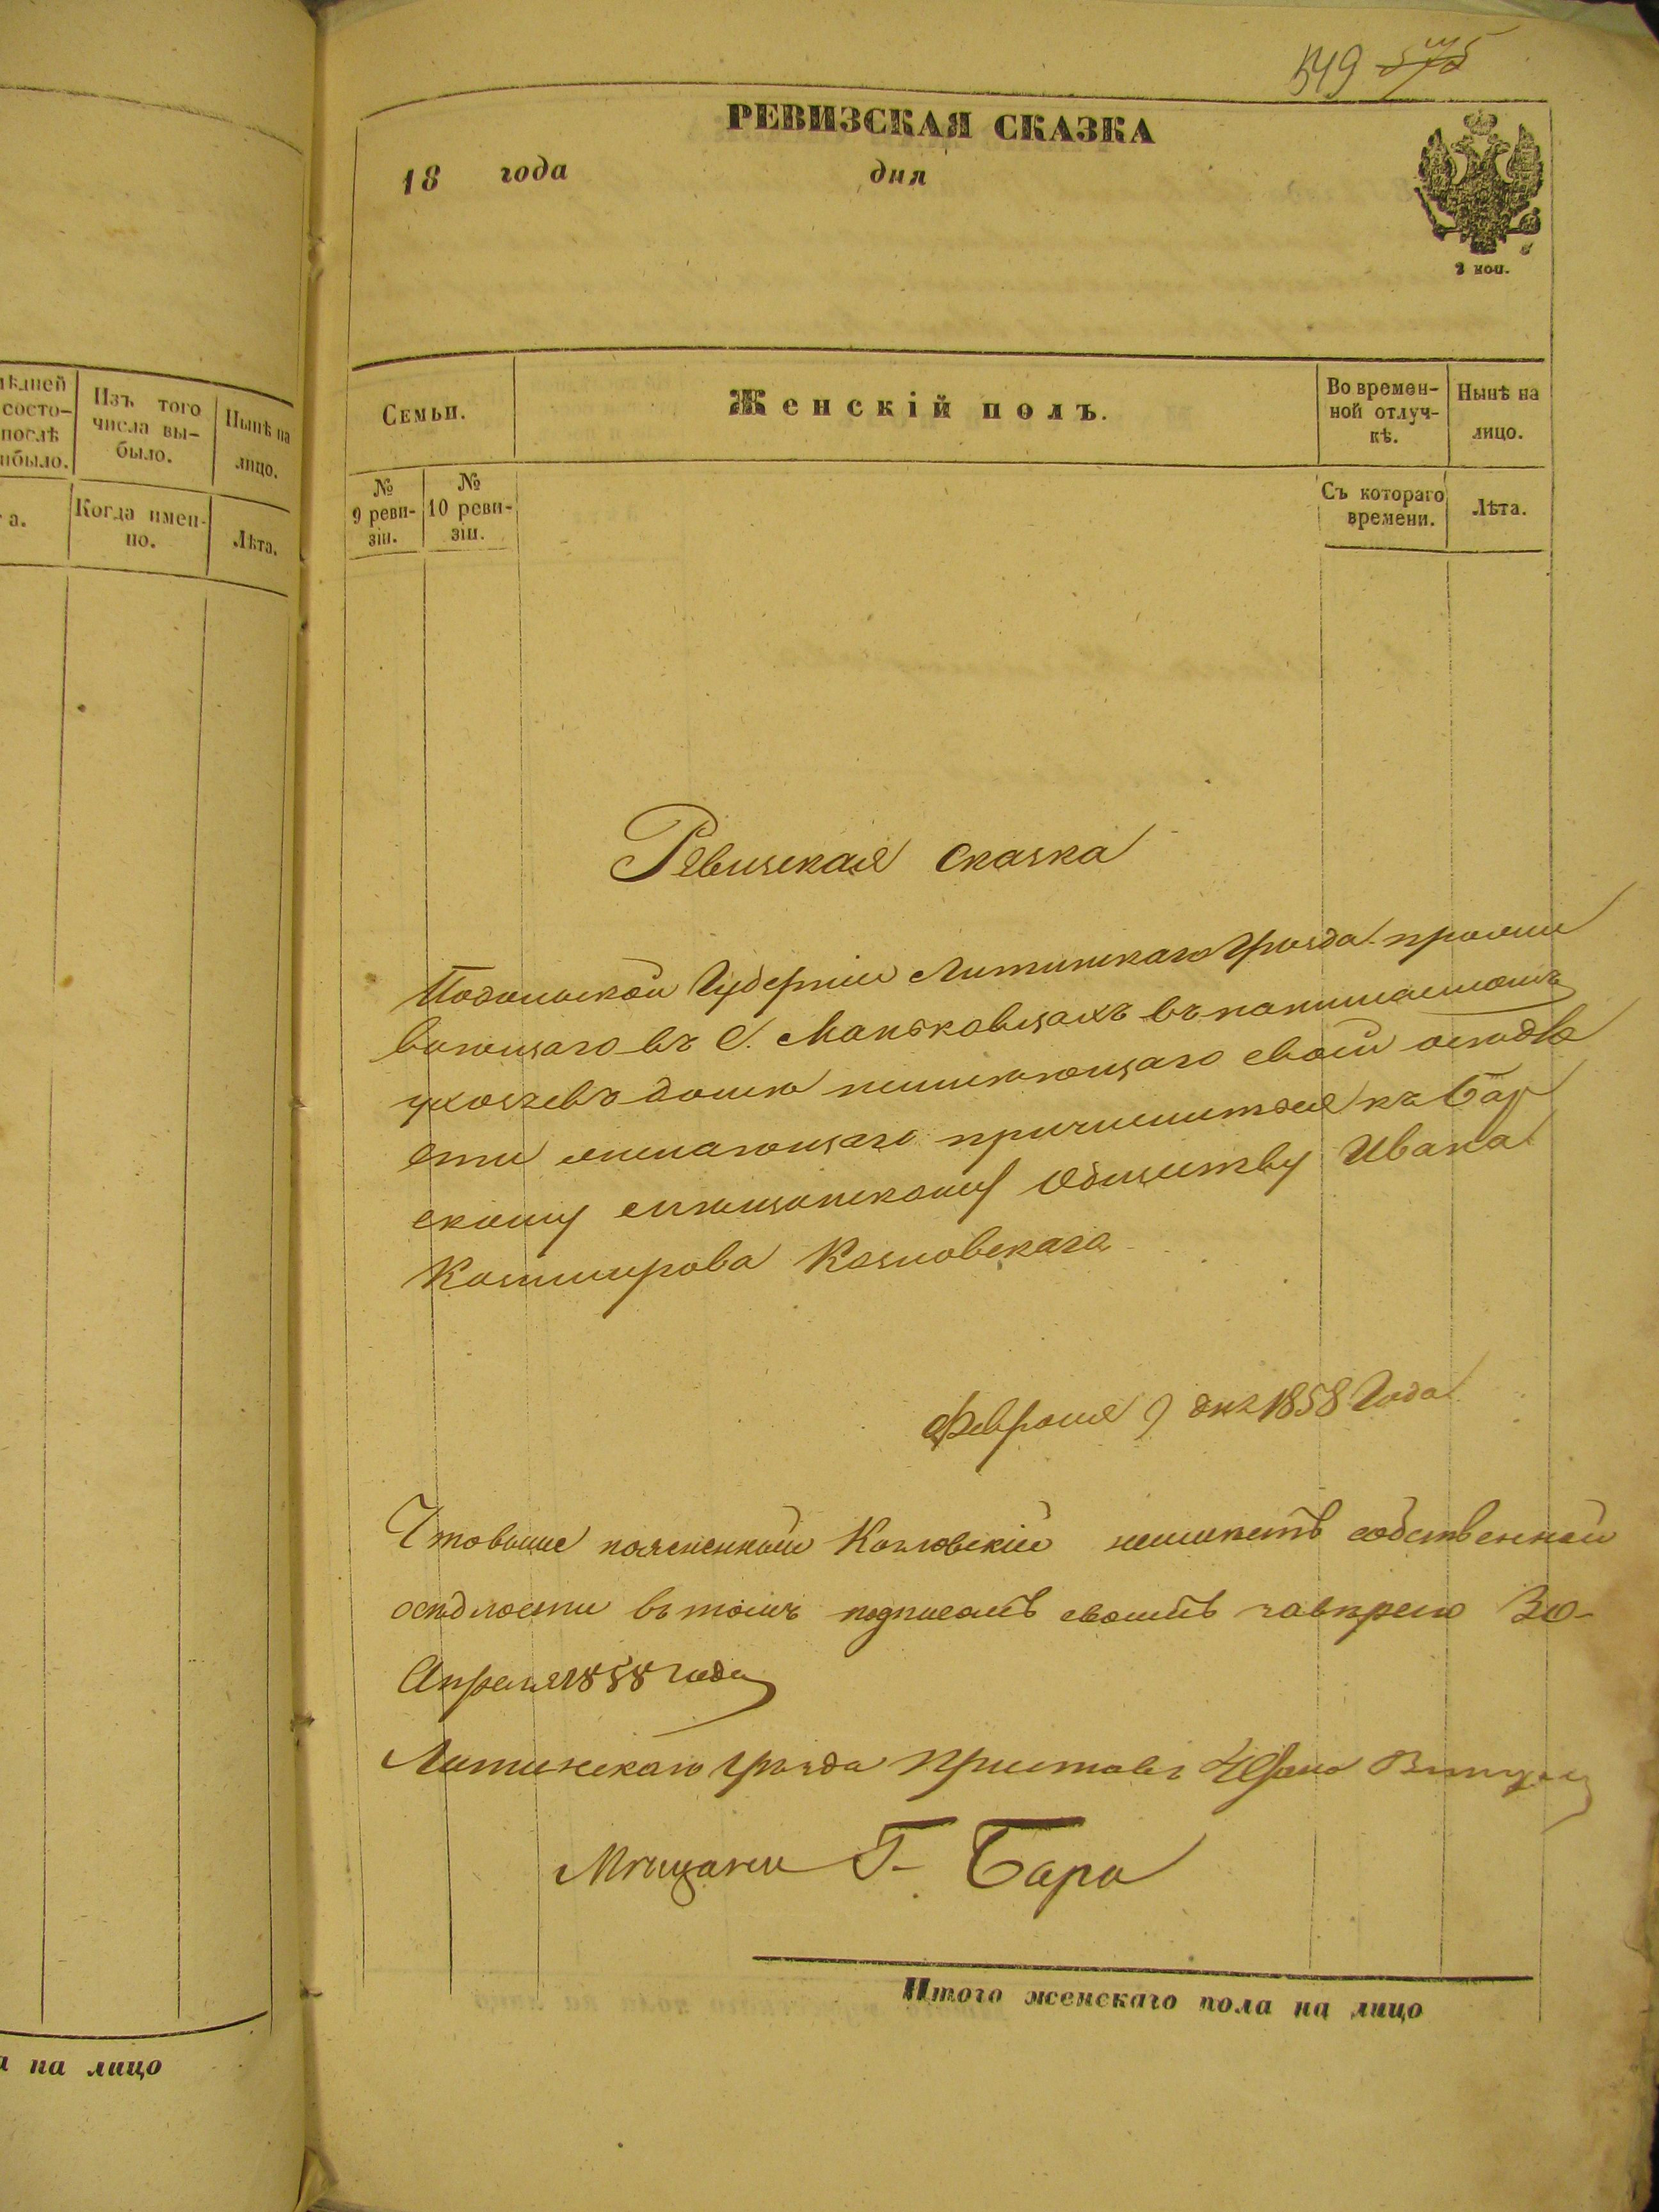 549 575
РЕВИЗСКАЯ СКАЗКА
18 года дня
2 коп.
мѣдней
состо-
послѣ
ибыло.
Изъ того
числа вы-
было.
Нынѣ на
лицо.
а.
Когда имен-
но.
Лѣта.
а на лицо
Семьи.
Женскій полъ.
Во времен-
ной отлуч-
кѣ.
Нынѣ на
лицо.
№
9 реви-
зіи.
№
10 реви-
зіи.
Съ котораго
времени.
Лѣта.
Ревизская сказка
Подольской Губерніи Литинскаго Уѣзда прожи
вающаго въ С. Маньковцахъ въ нанимаемомъ
у козаевъ домѣ неимѣющаго своей осѣдло
сти желающаго причислится къ Бар
скому мѣщанскому Обществу Ивана
Казимирова Козловскаго
Февраля 9 дня 1858 Года
Что выше поясненный Козловскій неимѣетъ собственной
осѣдлости въ томъ подписомъ своимъ заверяю 30-
Апреля 1858 года
Литинскаго Уѣзда Приставъ
Мѣщане Г- Бара
Итого женскаго пола на лицо